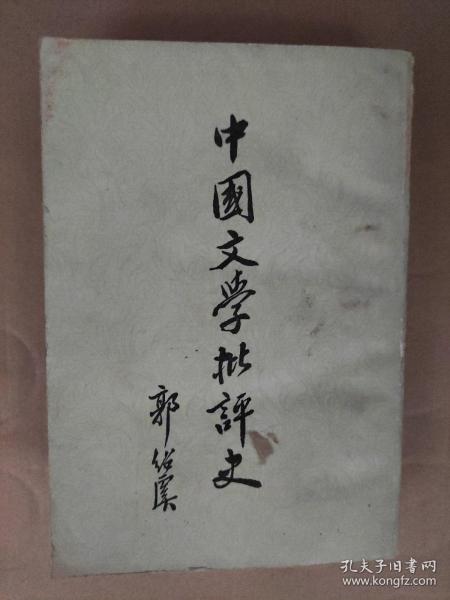 中國文學批評史
郭紹虞
孔夫子旧书网
www.kongfz.com